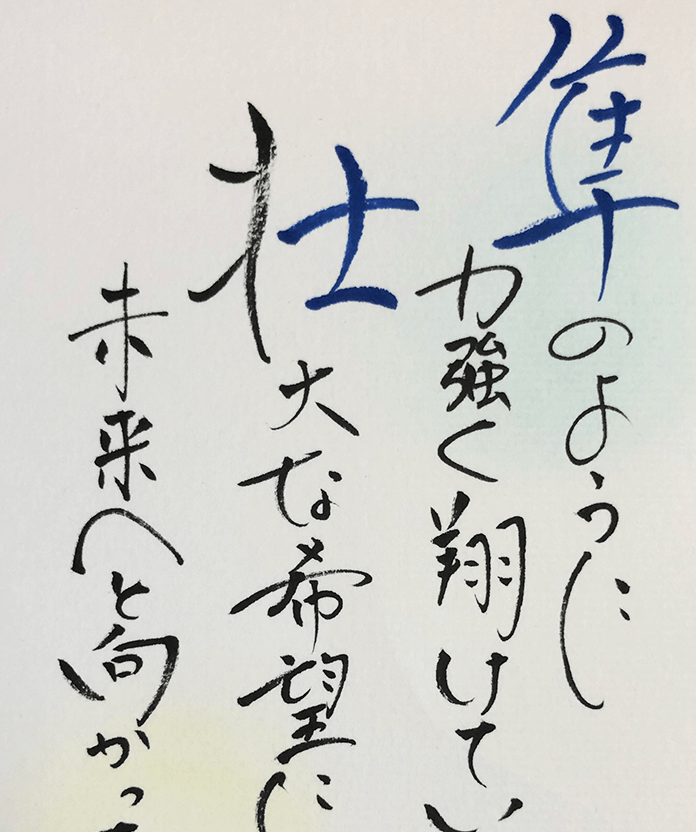 隼のように
力強く翔けてい
壮大な希望に
未来へと向かっ